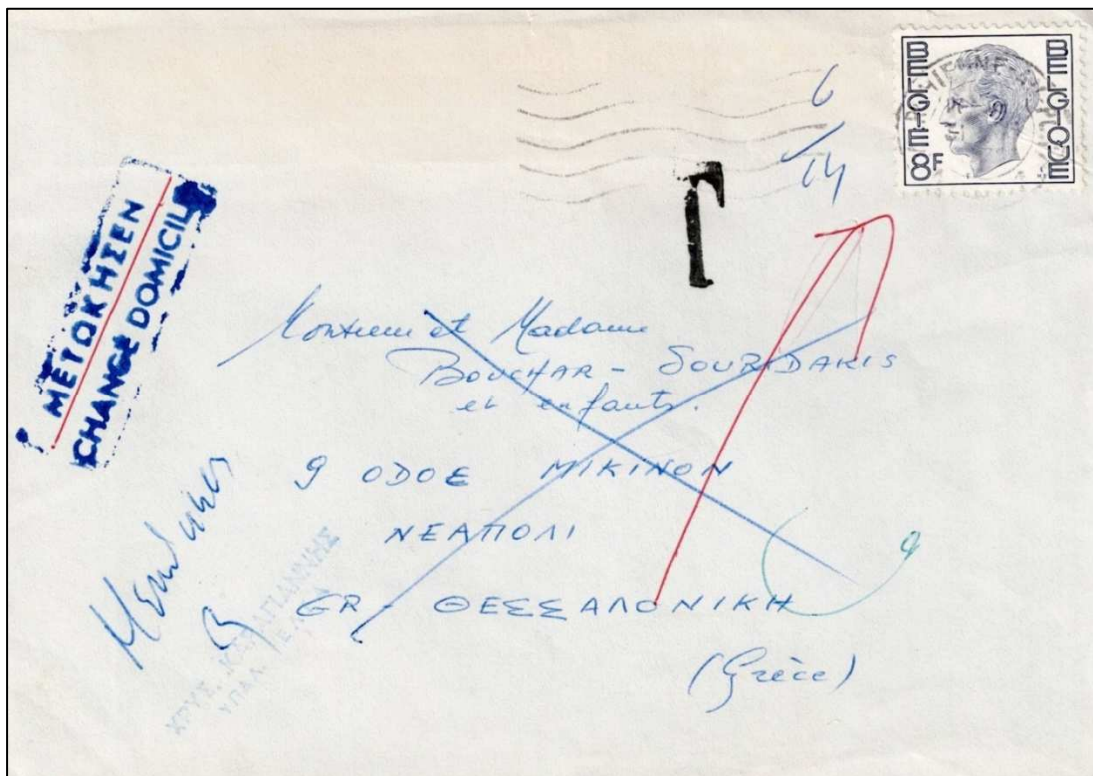 BELGIË 8F BELGIQUE
6
14
T
ΜΕΤΩΚΗΣΕΝ
CHANGÉ DOMICILE
Monsieur et Madame
BOUCHAR - SOURDAKIS
et enfants.
9 ODOE MIKINON
ΝΕΑΠΟΛΙ
GR - ΘΕΣΣΑΛΟΝΙΚΗ
(Grèce)
ΧΡΥΣ. ΚΑΡΑΓΙΑΝΝΗΣ
ΥΠΑΛ. ΕΛΤΑ